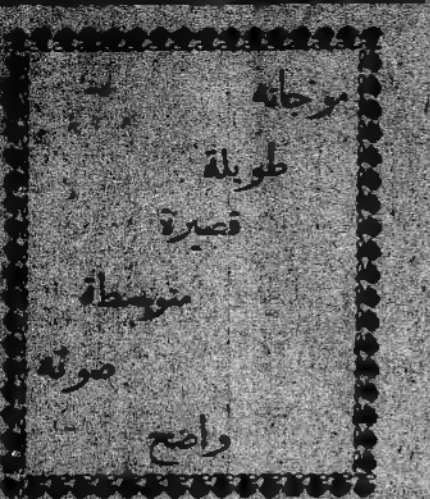 موجاته
طويلة
قصيرة
متوسطة
صوته
واضح